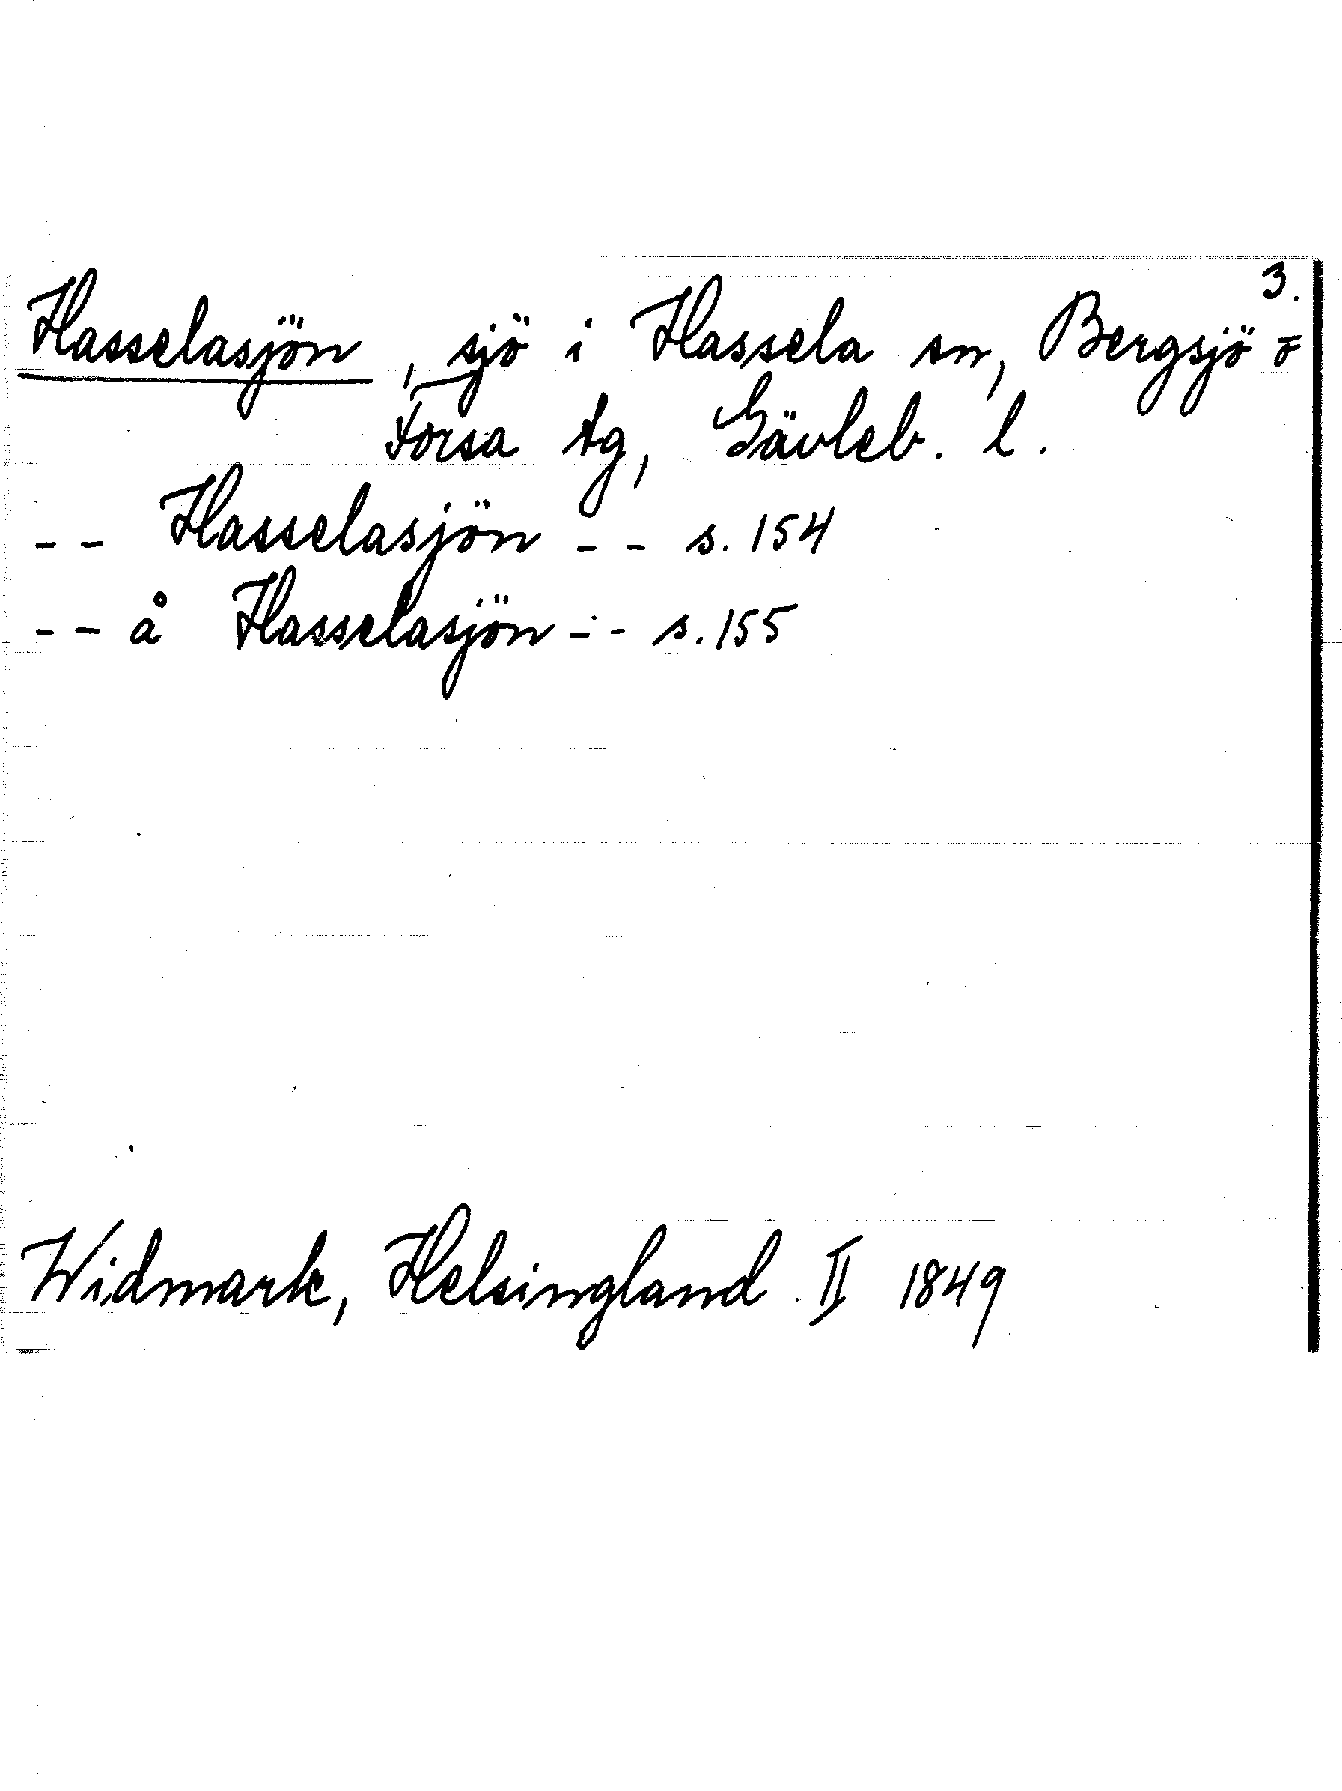 3.
Hasselasjön, sjö i Hassela sn, Bergsjö o
Forsa tg, Gävleb. l.
-- Hasselasjön -- s. 154
-- å Hasselasjön -- s. 155
Widmark, Helsingland II 1849